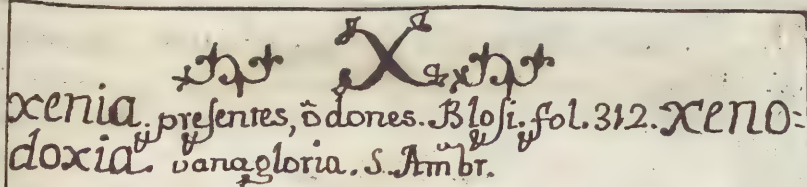 X
xenia. presentes, õ dones. Blosi. fol. 312. xeno=
doxia. vanagloria. S. Ambr.